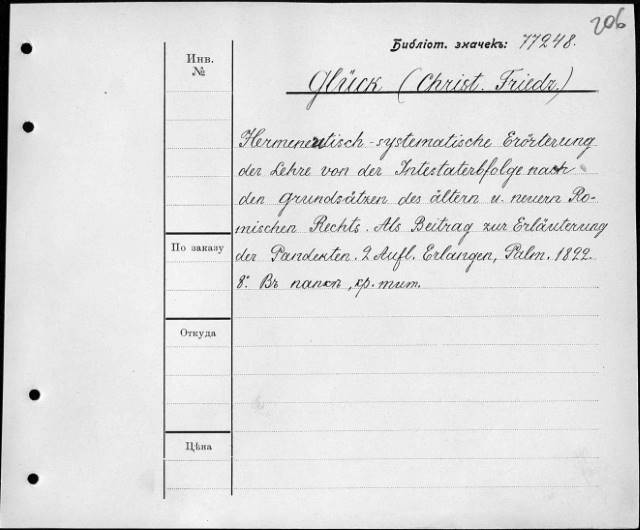 206
Библіот. значекъ: 77248.
Инв.
№
Glück (Christ. Friedr.)
Hermeneutisch-systematische Erörterung
der Lehre von der Intestaterbfolge nach
den Grundsätzen des ältern u. neuern Rö-
mischen Rechts. Als Beitrag zur Erläuterung
По заказу
der Pandekten. 2 Aufl. Erlangen, Palm. 1822.
8°. Въ папкѣ, кр. тит.
Откуда
Цѣна